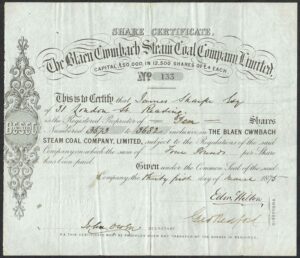 SHARE CERTIFICATE.
The Blaen Cwmbach Steam Coal Company Limited,
CAPITAL £50,000 IN 12,500 SHARES OF £4 EACH.
No 133
This is to Certify that James Sharpe Esq
of 31 London St Reading
is the Registered Proprietor of Ten Shares
Numbered 3673 to 3682 inclusive in THE BLAEN CWMBACH
STEAM COAL COMPANY, LIMITED, subject to the Regulations of the said
Company on which the sum of Four Pounds per Share
has been paid.
Given under the Common Seal of the said
Company, the thirty first day of March 1875
SECRETARY